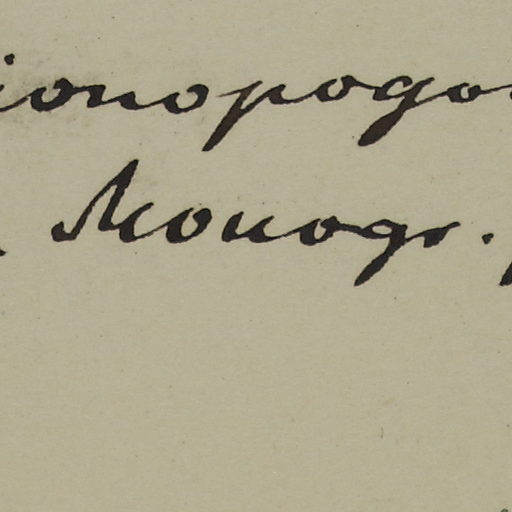 ionopogo
Monogr.